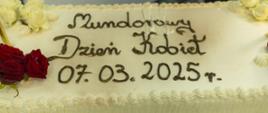 Mundorowy
Dzień Kobiet
07.03.2025r.